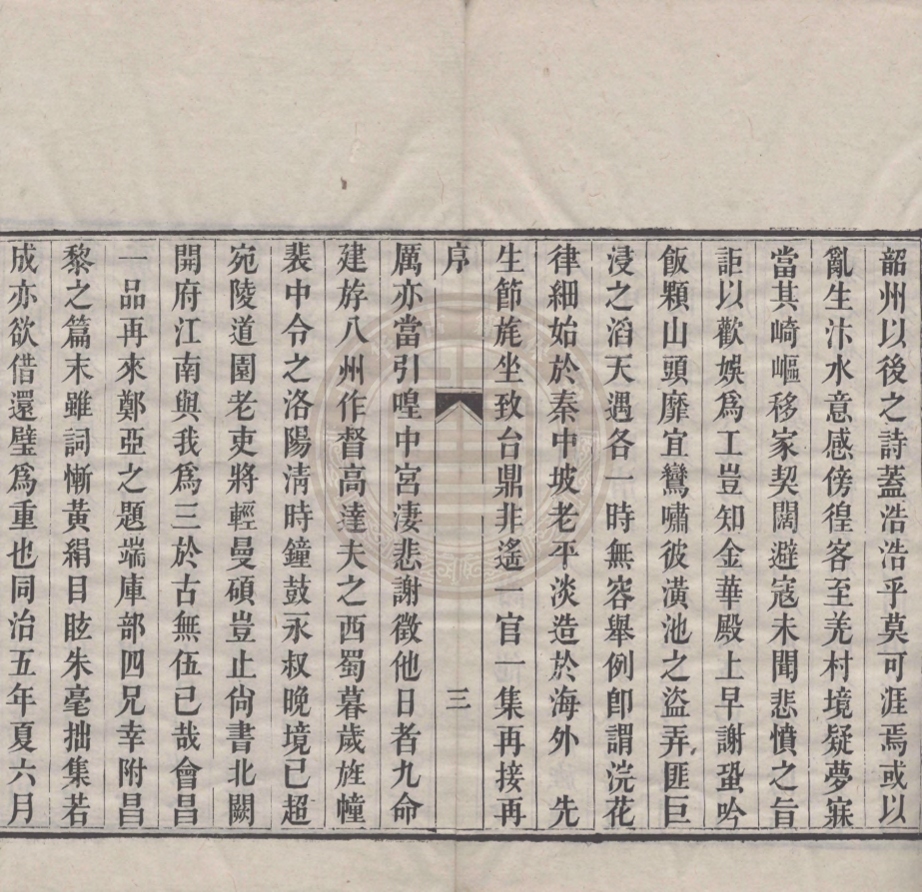 韶州以後之詩蓋浩浩乎莫可涯焉或以
亂生汴水意感傍徨客至羌村境疑夢寐
當其崎嶇移家契闊避寇未聞悲憤之旨
詎以歡娛爲工豈知金華殿上早謝蛩吟
飯顆山頭靡宜鸞嘯彼潢池之盜弄匪巨
浸之滔天遇各一時無容舉例卽謂浣花
律細始於秦中坡老平淡造於海外 先
生節旄坐致台鼎非遙一官一集再接再
序 三
厲亦當引喤中宮凄悲謝徵他日者九命
建斿八州作督高達夫之西蜀暮歲旌幢
裴中令之洛陽淸時鐘鼓永叔晚境已超
宛陵道園老吏將輕曼碩豈止尙書北闕
開府江南與我爲三於古無伍已哉會昌
一品再來鄭亞之題端庫部四兄幸附昌
黎之篇末雖詞慚黃絹目眩朱毫拙集若
成亦欲借還璧爲重也同治五年夏六月